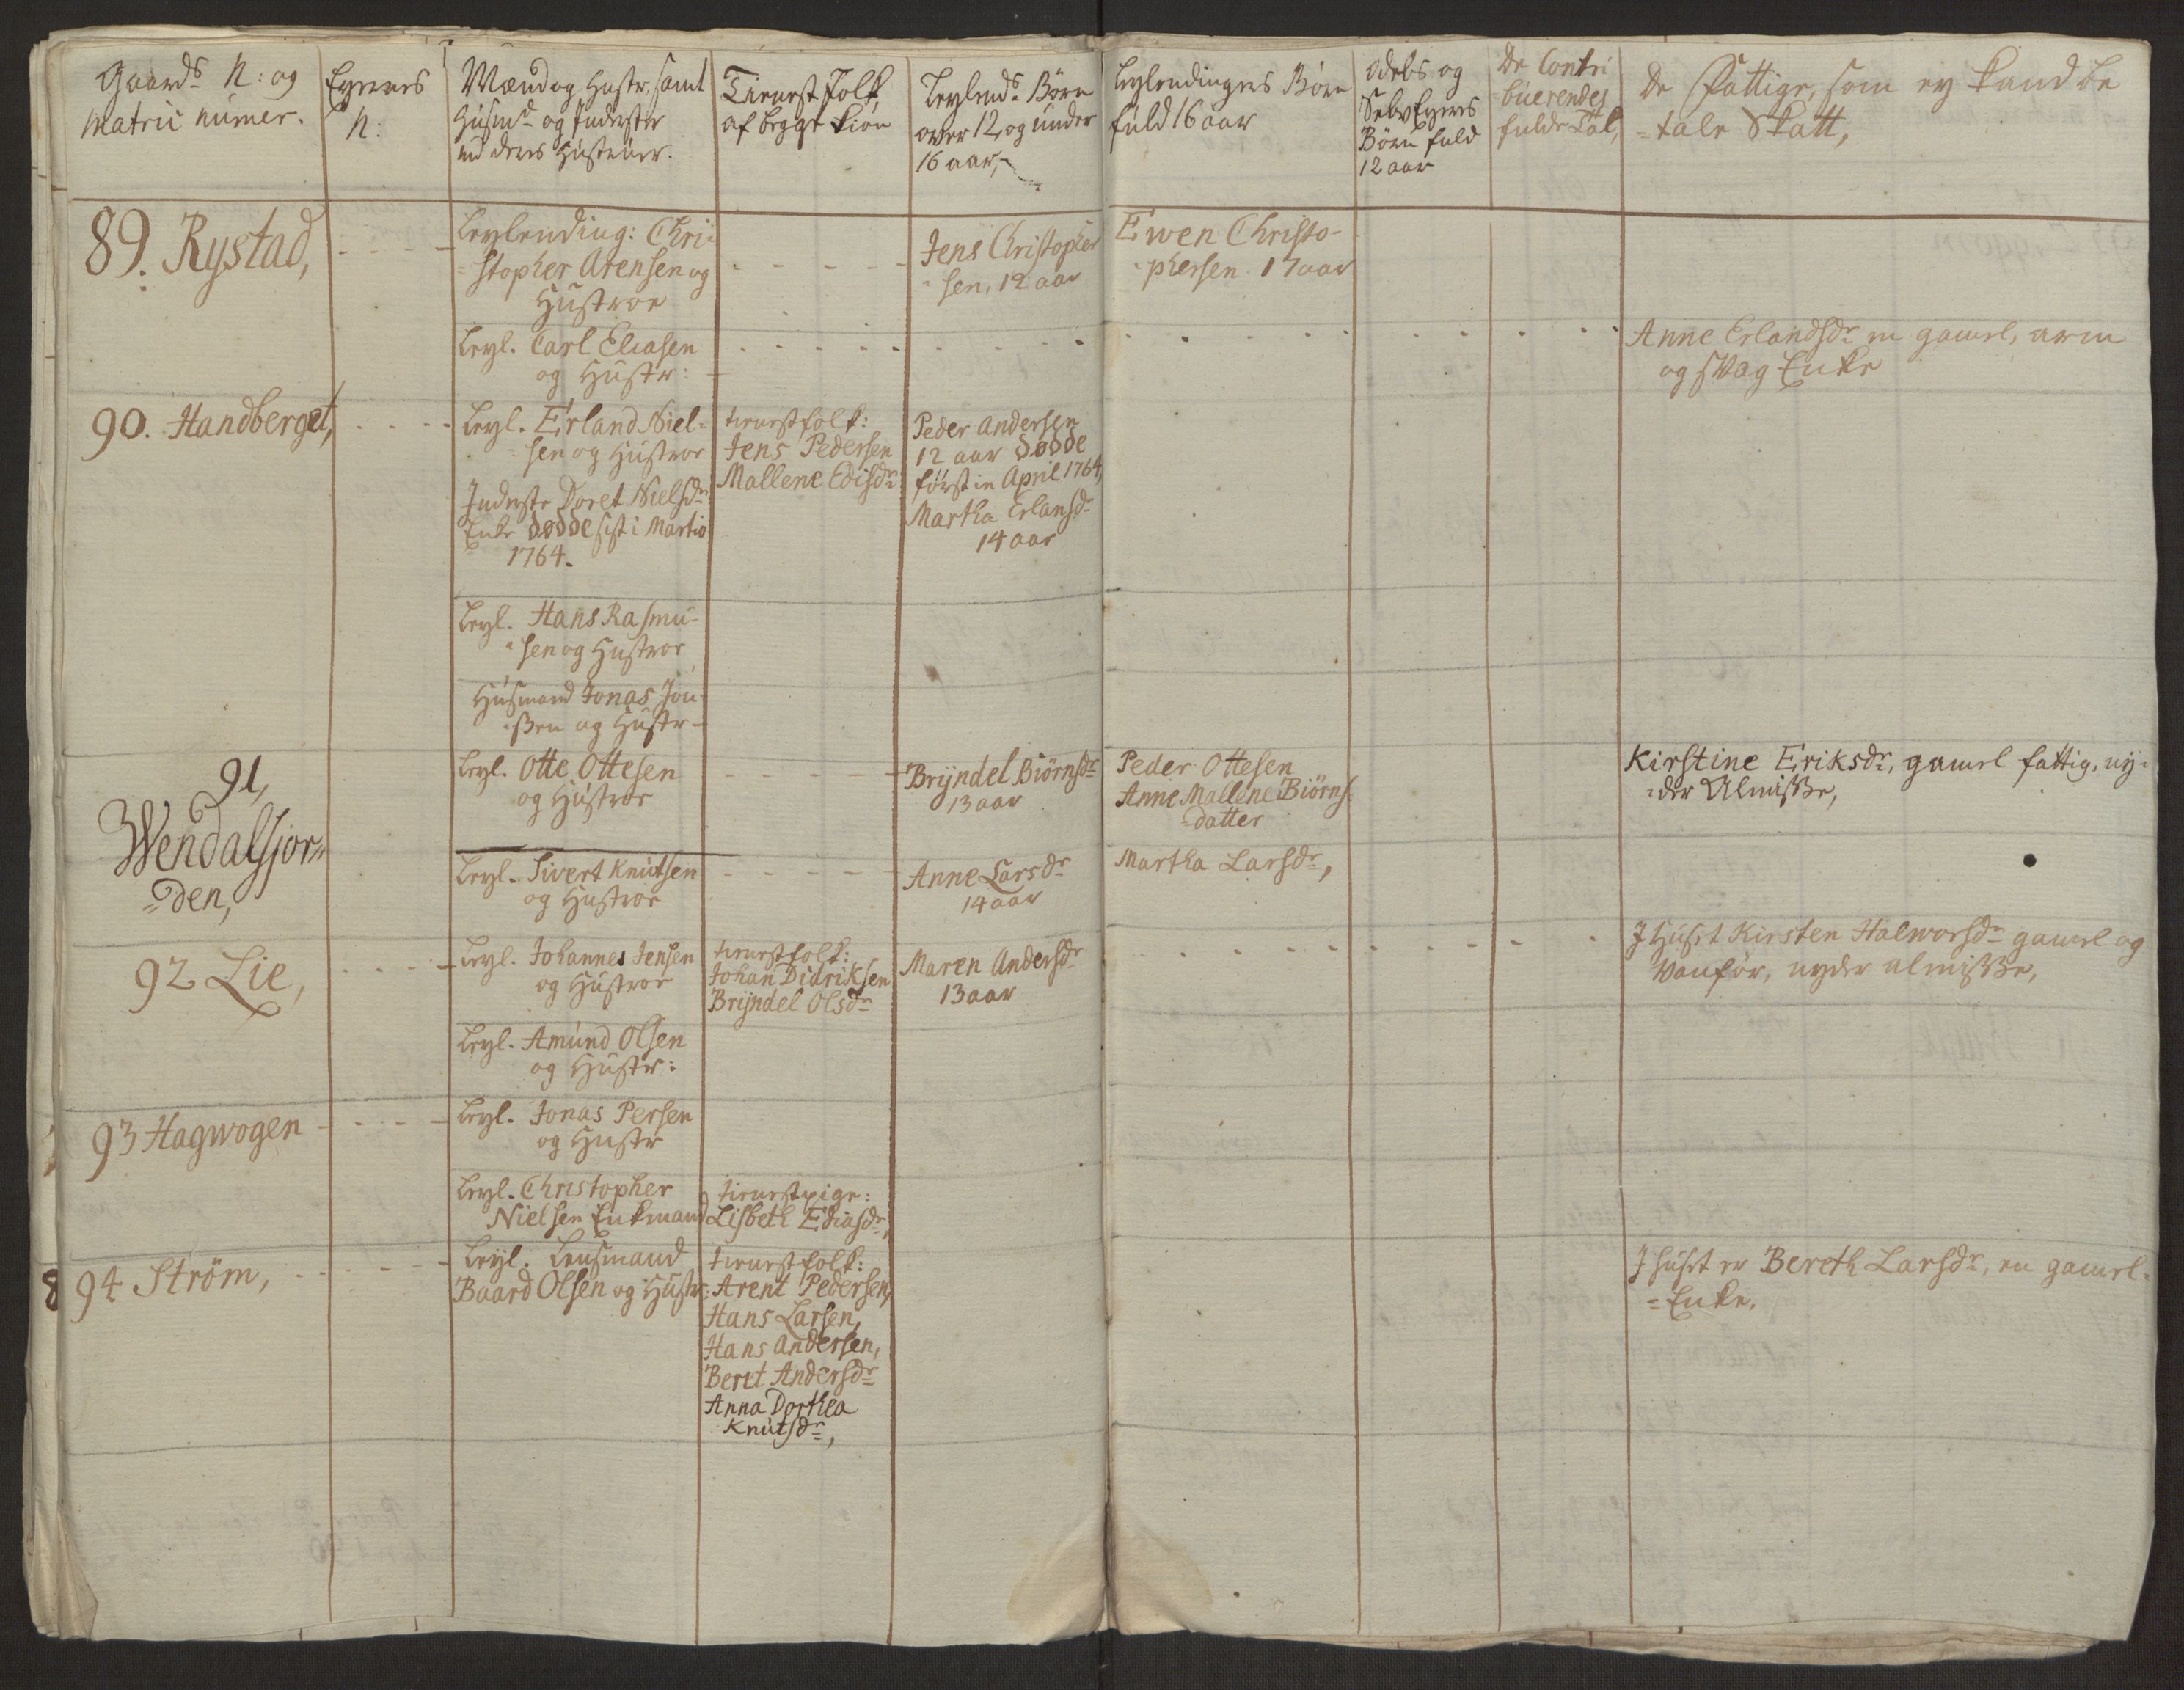 Gaards N: og
Matric numer.
Eyernes
N:
Mænd og Hustr. samt
Husmd. og Inderster
med deres Hustruer.
Tienest Folk,
af begge Kiøn
Leylends. Börn
over 12, og under
16 aar,
Leylendingers Börn
fuld 16 aar
Odels og
Selv Eyeres
Börn fuld
12 aar
De Contri
=buerendes
fulde Tal,
De Fattige, som ey kand be
=tale Skatt,
89. Rystad,
Leylending: Chri=
=stopher Arensen og
Hustroe
Jens Christopher
=sen, 12 aar
Ewen Christo-
=phersen 17 aar
Leyl. Carl Eliasen
og Hustr:
Anne Erlandsdr. en gamel, arm
og svag Enke
90. Handberget,
Leyl. Erland Niel=
=sen og Hustroe
Inderste Doret Nielsdr.
Enke døde sist i Martio
1764.
tienestfolk:
Jens Pedersen
Mallene Edisdr.
Peder Andersen
12 aar døde
først in April 1764,
Martha Erlansdr.
14 aar
Leyl. Hans Rasmu-
=sen og Hustroe
Husmand Jonas Jon-
=ssen og Hustr-
91,
Wendalsjor=
=den,
Leyl. Otte Ottesen
og Hustroe
Bryndel Biörnsdr.
13 aar
Peder Ottesen
Anne Mallene Biörns
=datter
Kirstine Eriksdr., gamel fattig, ny=
=der Almisse,
Leyl. Sivert Knutsen
og Hustroe
Anne Larsdr.
14 aar
Martha Larsdr.,
92 Lie,
Leyl. Johannes Jensen
og Hustroe
tienestfolk:
Johan Didriksen
Bryndel Olsdr.
Maren Andersdr.
13 aar
J Huset Kirsten Halworsdr. gamel og
Vanför, nyder almisse,
Leyl. Amund Olsen
og Hustr:
93 Hagwogen
Leyl. Jonas Persen
og Hustr
Leyl. Christopher
Nielsen Enkemand
tienestpige:
Lisbeth Ediasdr.,
94 Ström,
Leyl. Lensmand
Baard Olsen og Hustr:
tienestfolk:
Arent Pedersen,
Hans Larsen,
Hans Andersen,
Beret Andersdr.
Anna Dorthea
Knutsdr.,
J huset er Bereth Larsdr., en gamel
=Enke,